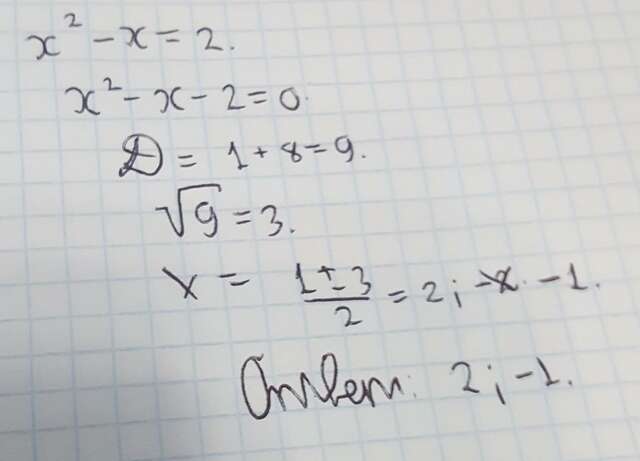 x² - x = 2.
x² - x - 2 = 0.
D = 1 + 8 = 9.
√9 = 3.
x = (1 ± 3)/2 = 2; -1.
Ответ: 2; -1.